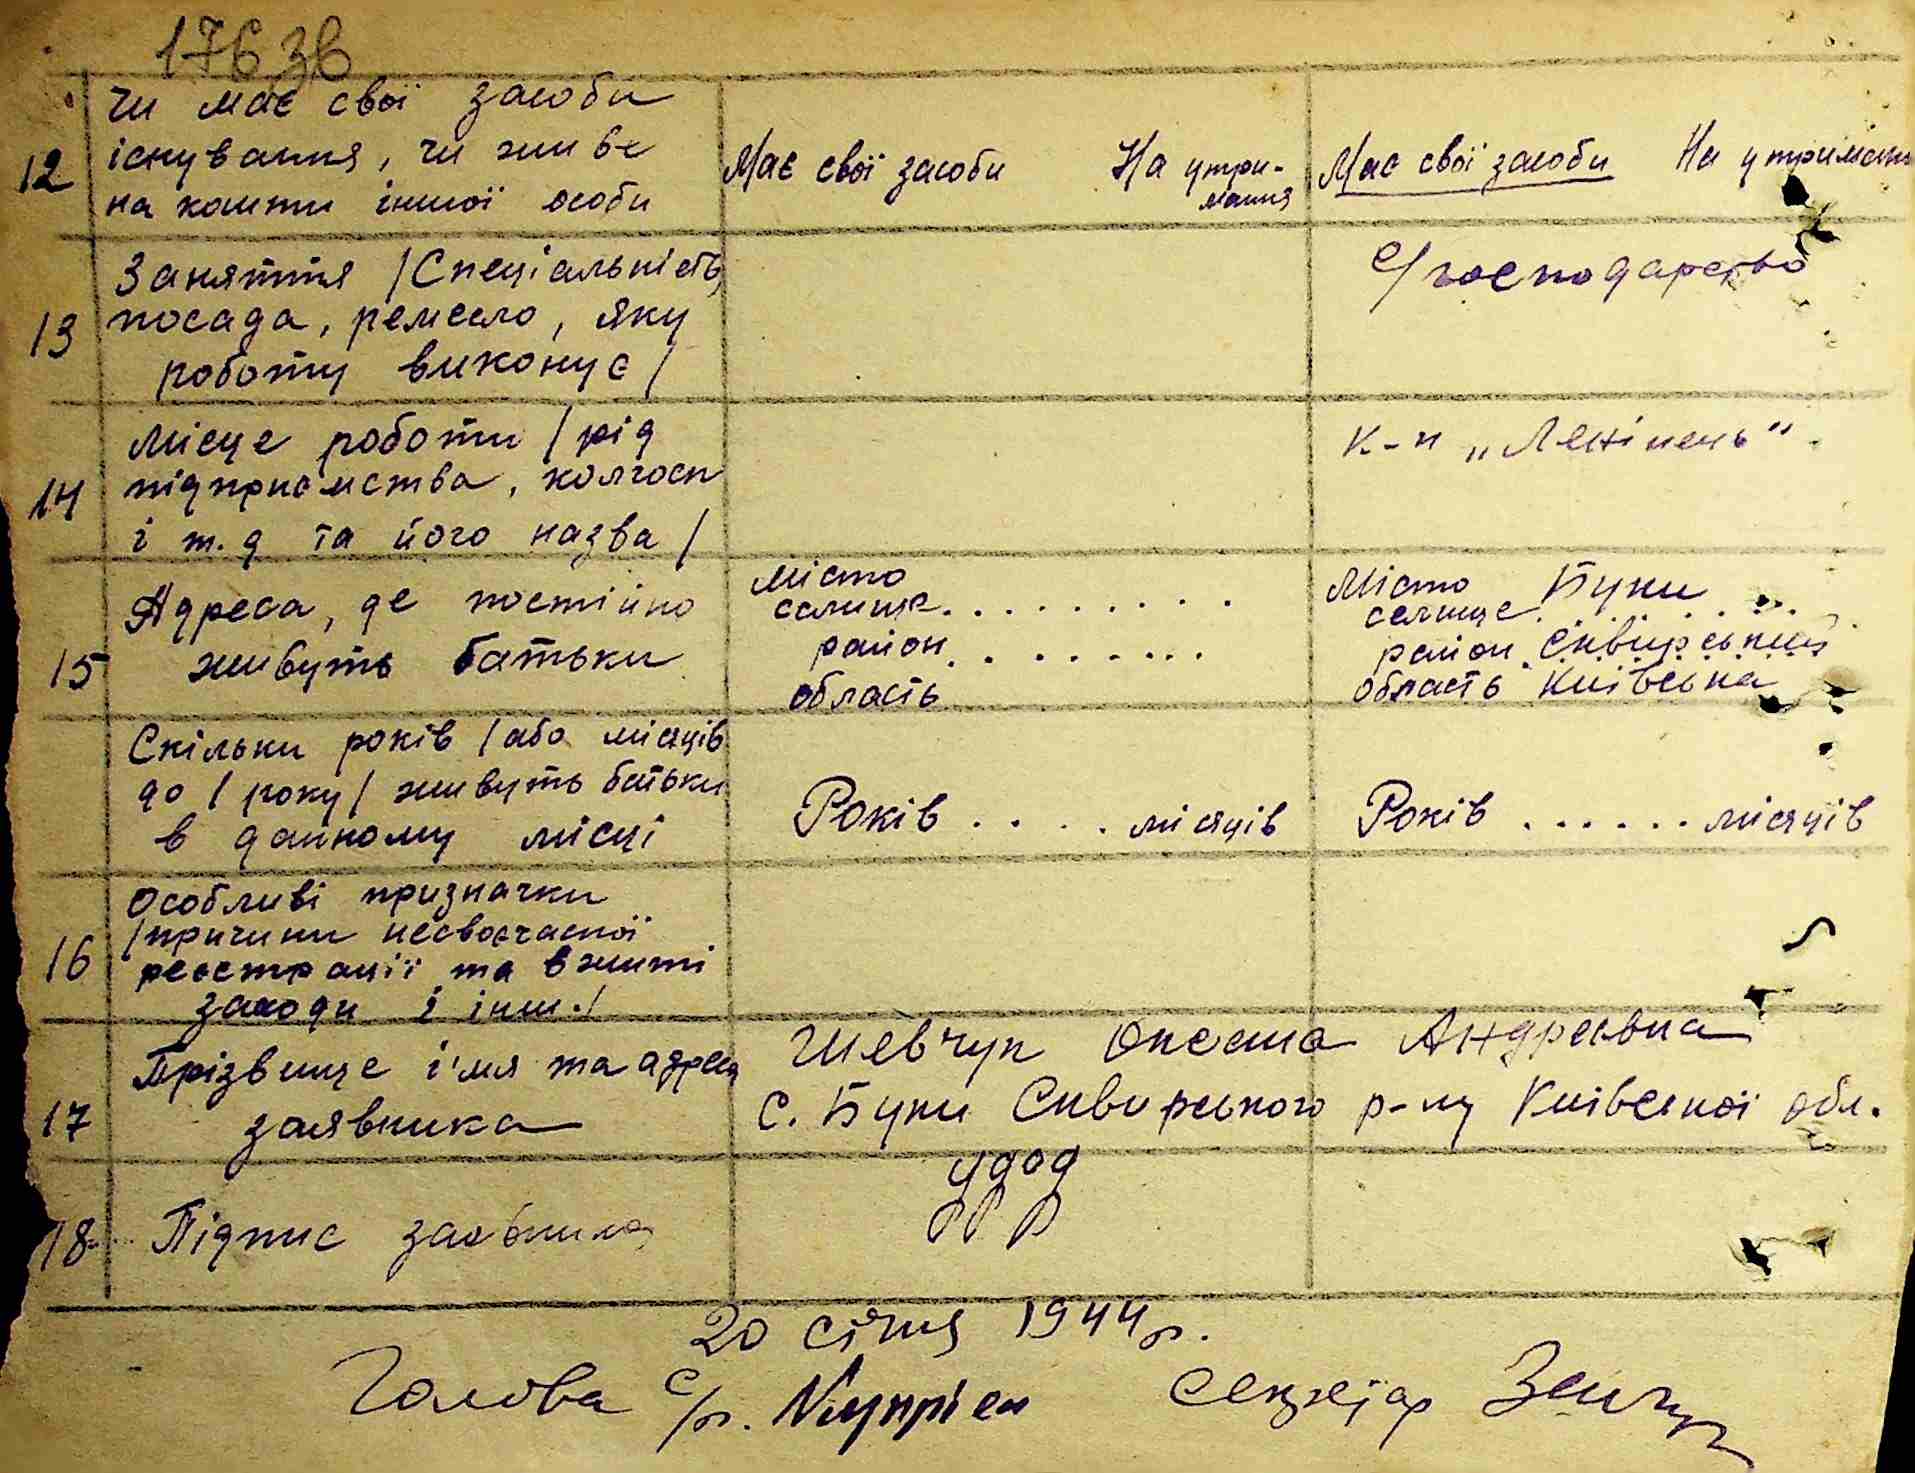 176 зв
12
Чи має свої засоби
існування, чи живе
на кошти іншої особи
Має свої засоби
На утри-
мання
Має свої засоби
На утримання
13
Заняття /Спеціальність,
посада, ремесло, яку
роботу виконує/
С/господарство
14
Місце роботи /рід
підприємства, колгосп
і т.д та його назва/
к-п „Ленінець"
15
Адреса, де постійно
живуть батьки
Місто
селище . . . . . . . . . .
район . . . . . . . .
область
Місто
селище Буки
район Сквирський
область Київська
16
Скільки років /або місяців
до 1 року/ живуть батьки
в данному місці
Років . . . . місяців
Років . . . . . . місяців
Особливі призначки
/причини несвоєчасної
реєстрації та вжиті
заходи і інш./
17
Прізвище і'мя та адреса
заявника
Шевчук Оксана Андреевна
с. Буки Сквирського р-ну Київської обл.
18
Підпис заявника
20 січня 1944 р.
Голова с/р.
секретар